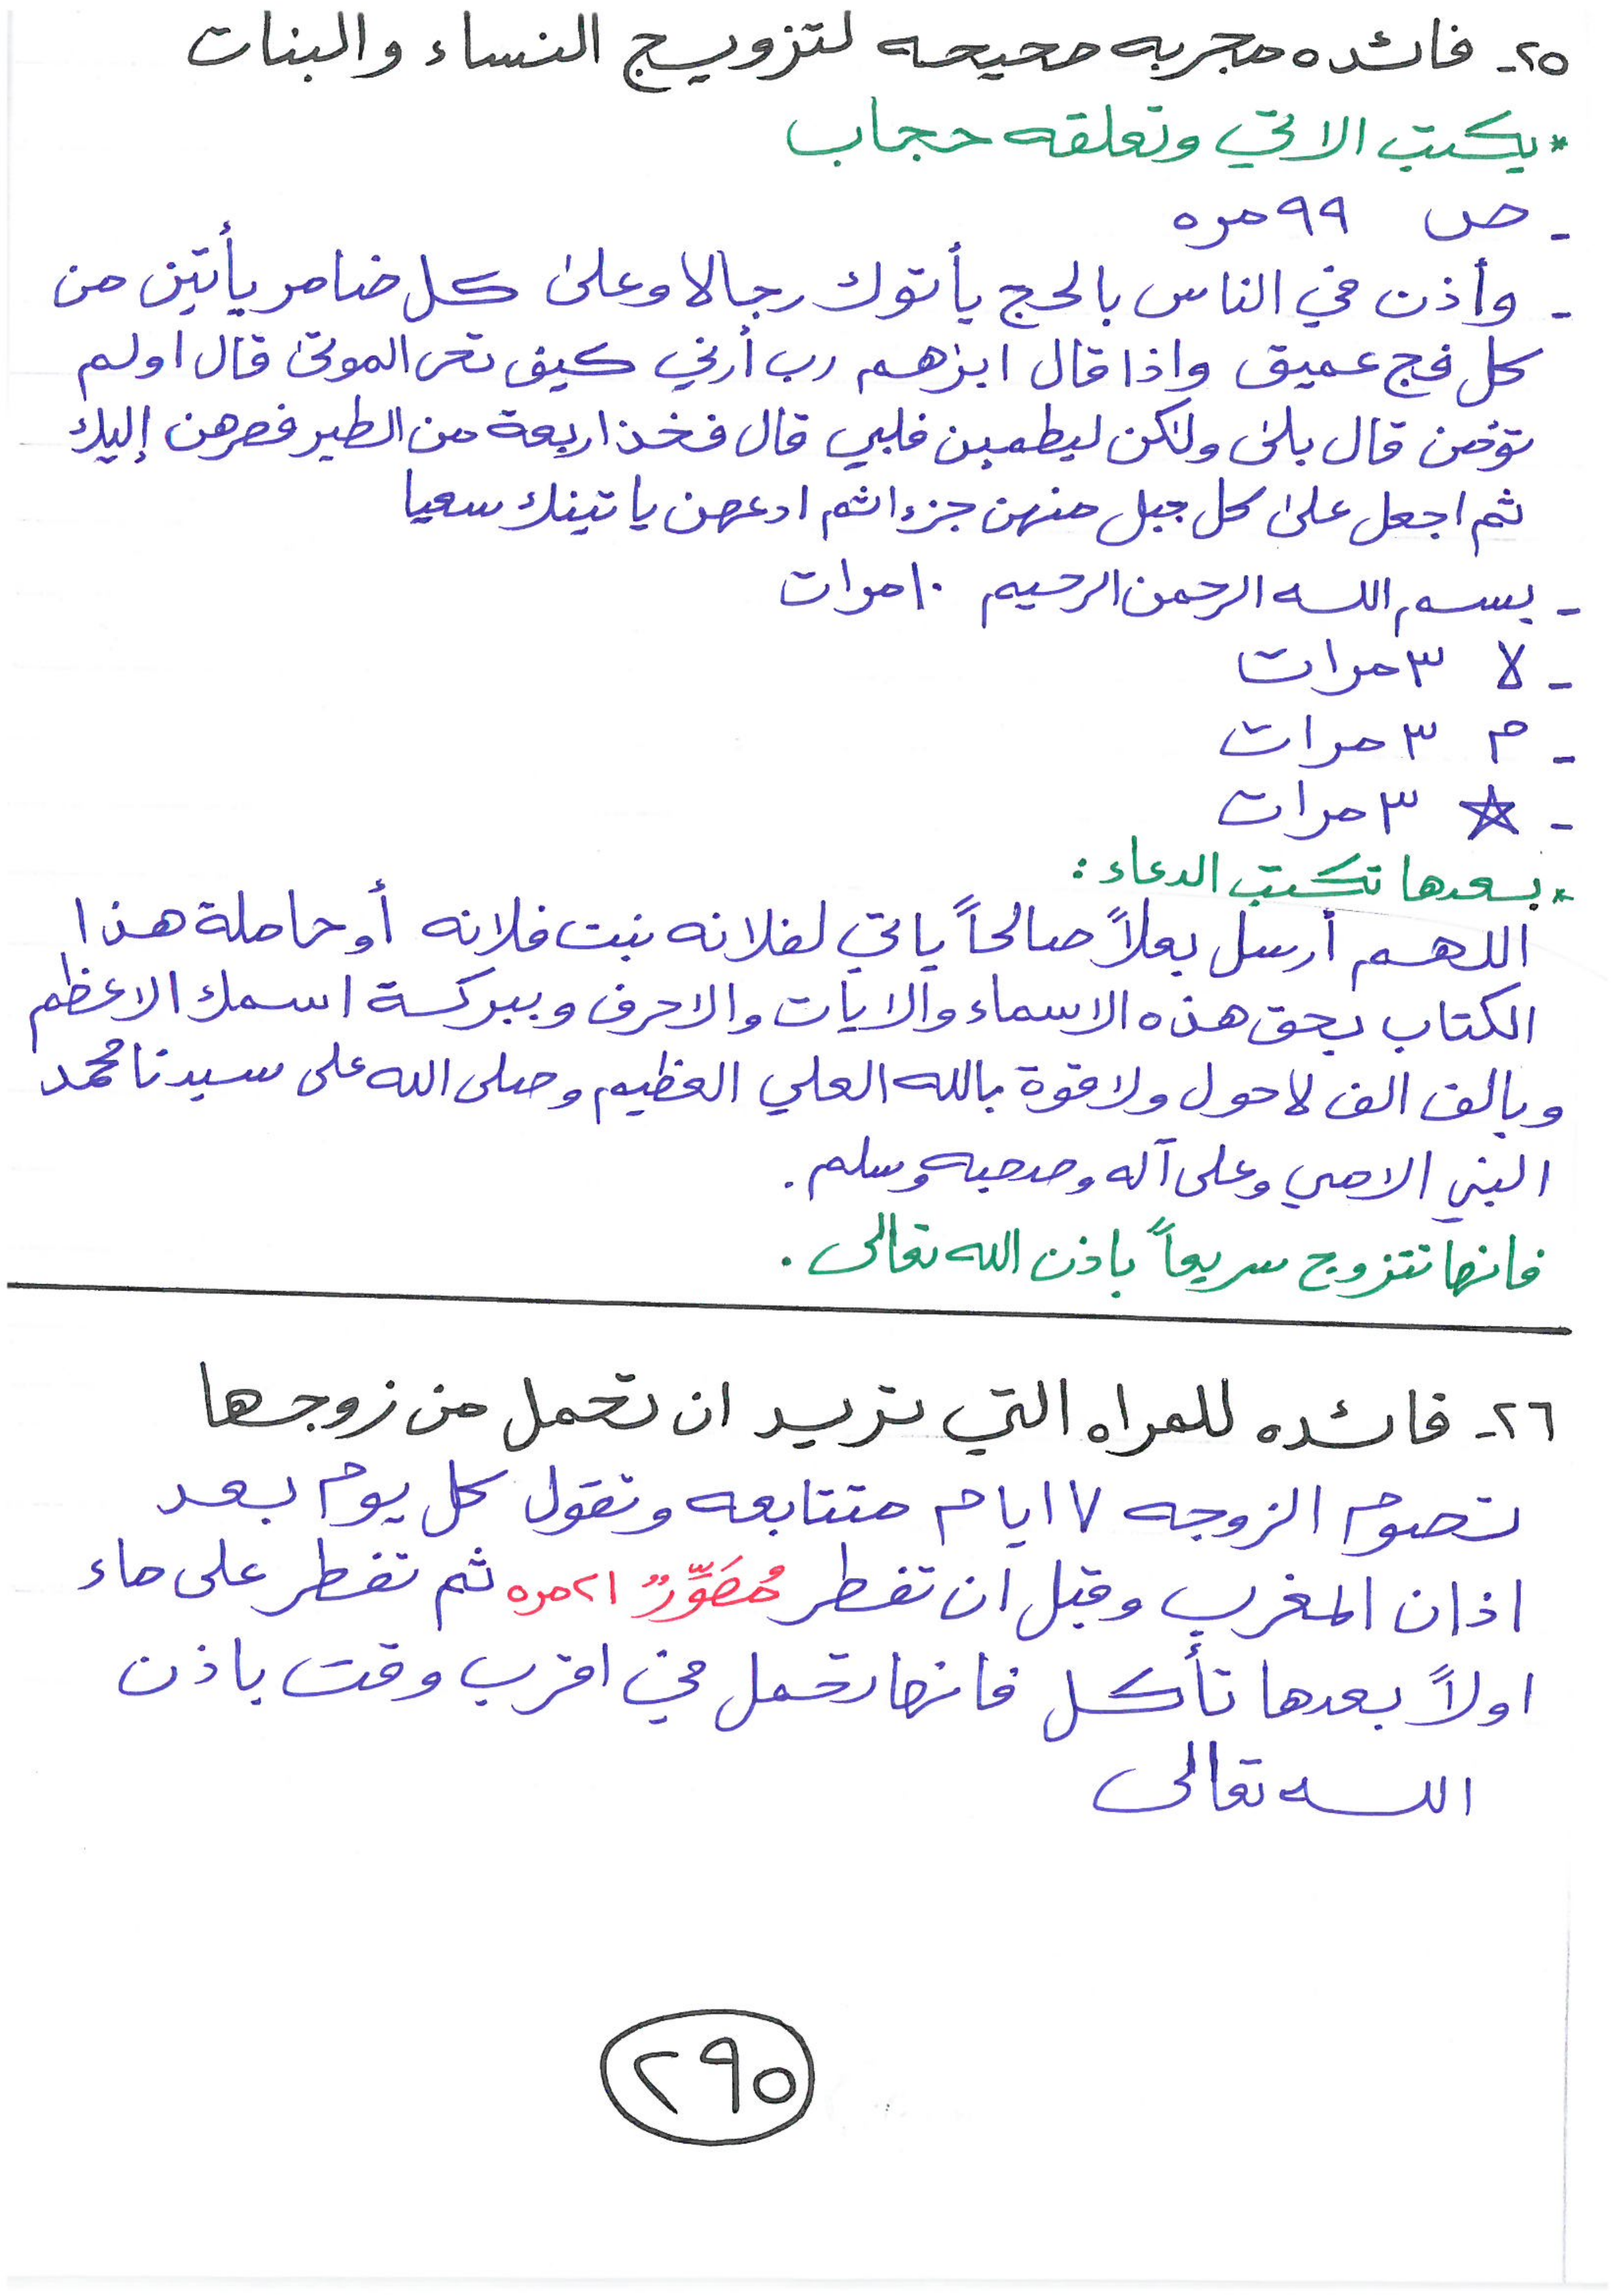 ٢٥- فائده مجربه صحيحه لتزويج النساء والبنات
* يكتب الاتي وتعلقه حجاب
- ص ٩٩ مره
- وأذن في الناس بالحج يأتوك رجالا وعلى كل ضامر يأتين من
كل فج عميق واذا قال ابرهم رب أرني كيف تحي الموتى قال اولم
تؤمن قال بلى ولكن ليطمين قلبي قال فخذ اربعة من الطير فصرهن إليك
ثم اجعل على كل جبل منهن جزءا ثم ادعهن ياتينك سعيا
- بسم الله الرحمن الرحيم ١٠ مرات
- لا ٣ مرات
- م ٣ مرات
- ☆ ٣ مرات
* بعدها تكتب الدعاء :
اللهم أرسل بعلاً صالحاً ياتي لفلانه بنت فلانه أو حاملة هذا
الكتاب بحق هذه الاسماء والايات والاحرف وببركة اسمك الاعظم
وبالف الف لا حول ولا قوة بالله العلي العظيم وصلى الله على سيدنا محمد
النبي الامي وعلى آله وصحبه وسلم .
فانها تتزوج سريعاً باذن الله تعالى .
٢٦- فائده للمراه التي تريد ان تحمل من زوجها
تصوم الزوجه ٧ ايام متتابعه وتقول كل يوم بعد
اذان المغرب وقبل ان تفطر مُصَوِّرٌ ٢١ مره ثم تفطر على ماء
اولاً بعدها تأكل فانها تحمل في اقرب وقت باذن
الله تعالى
٢٩٥